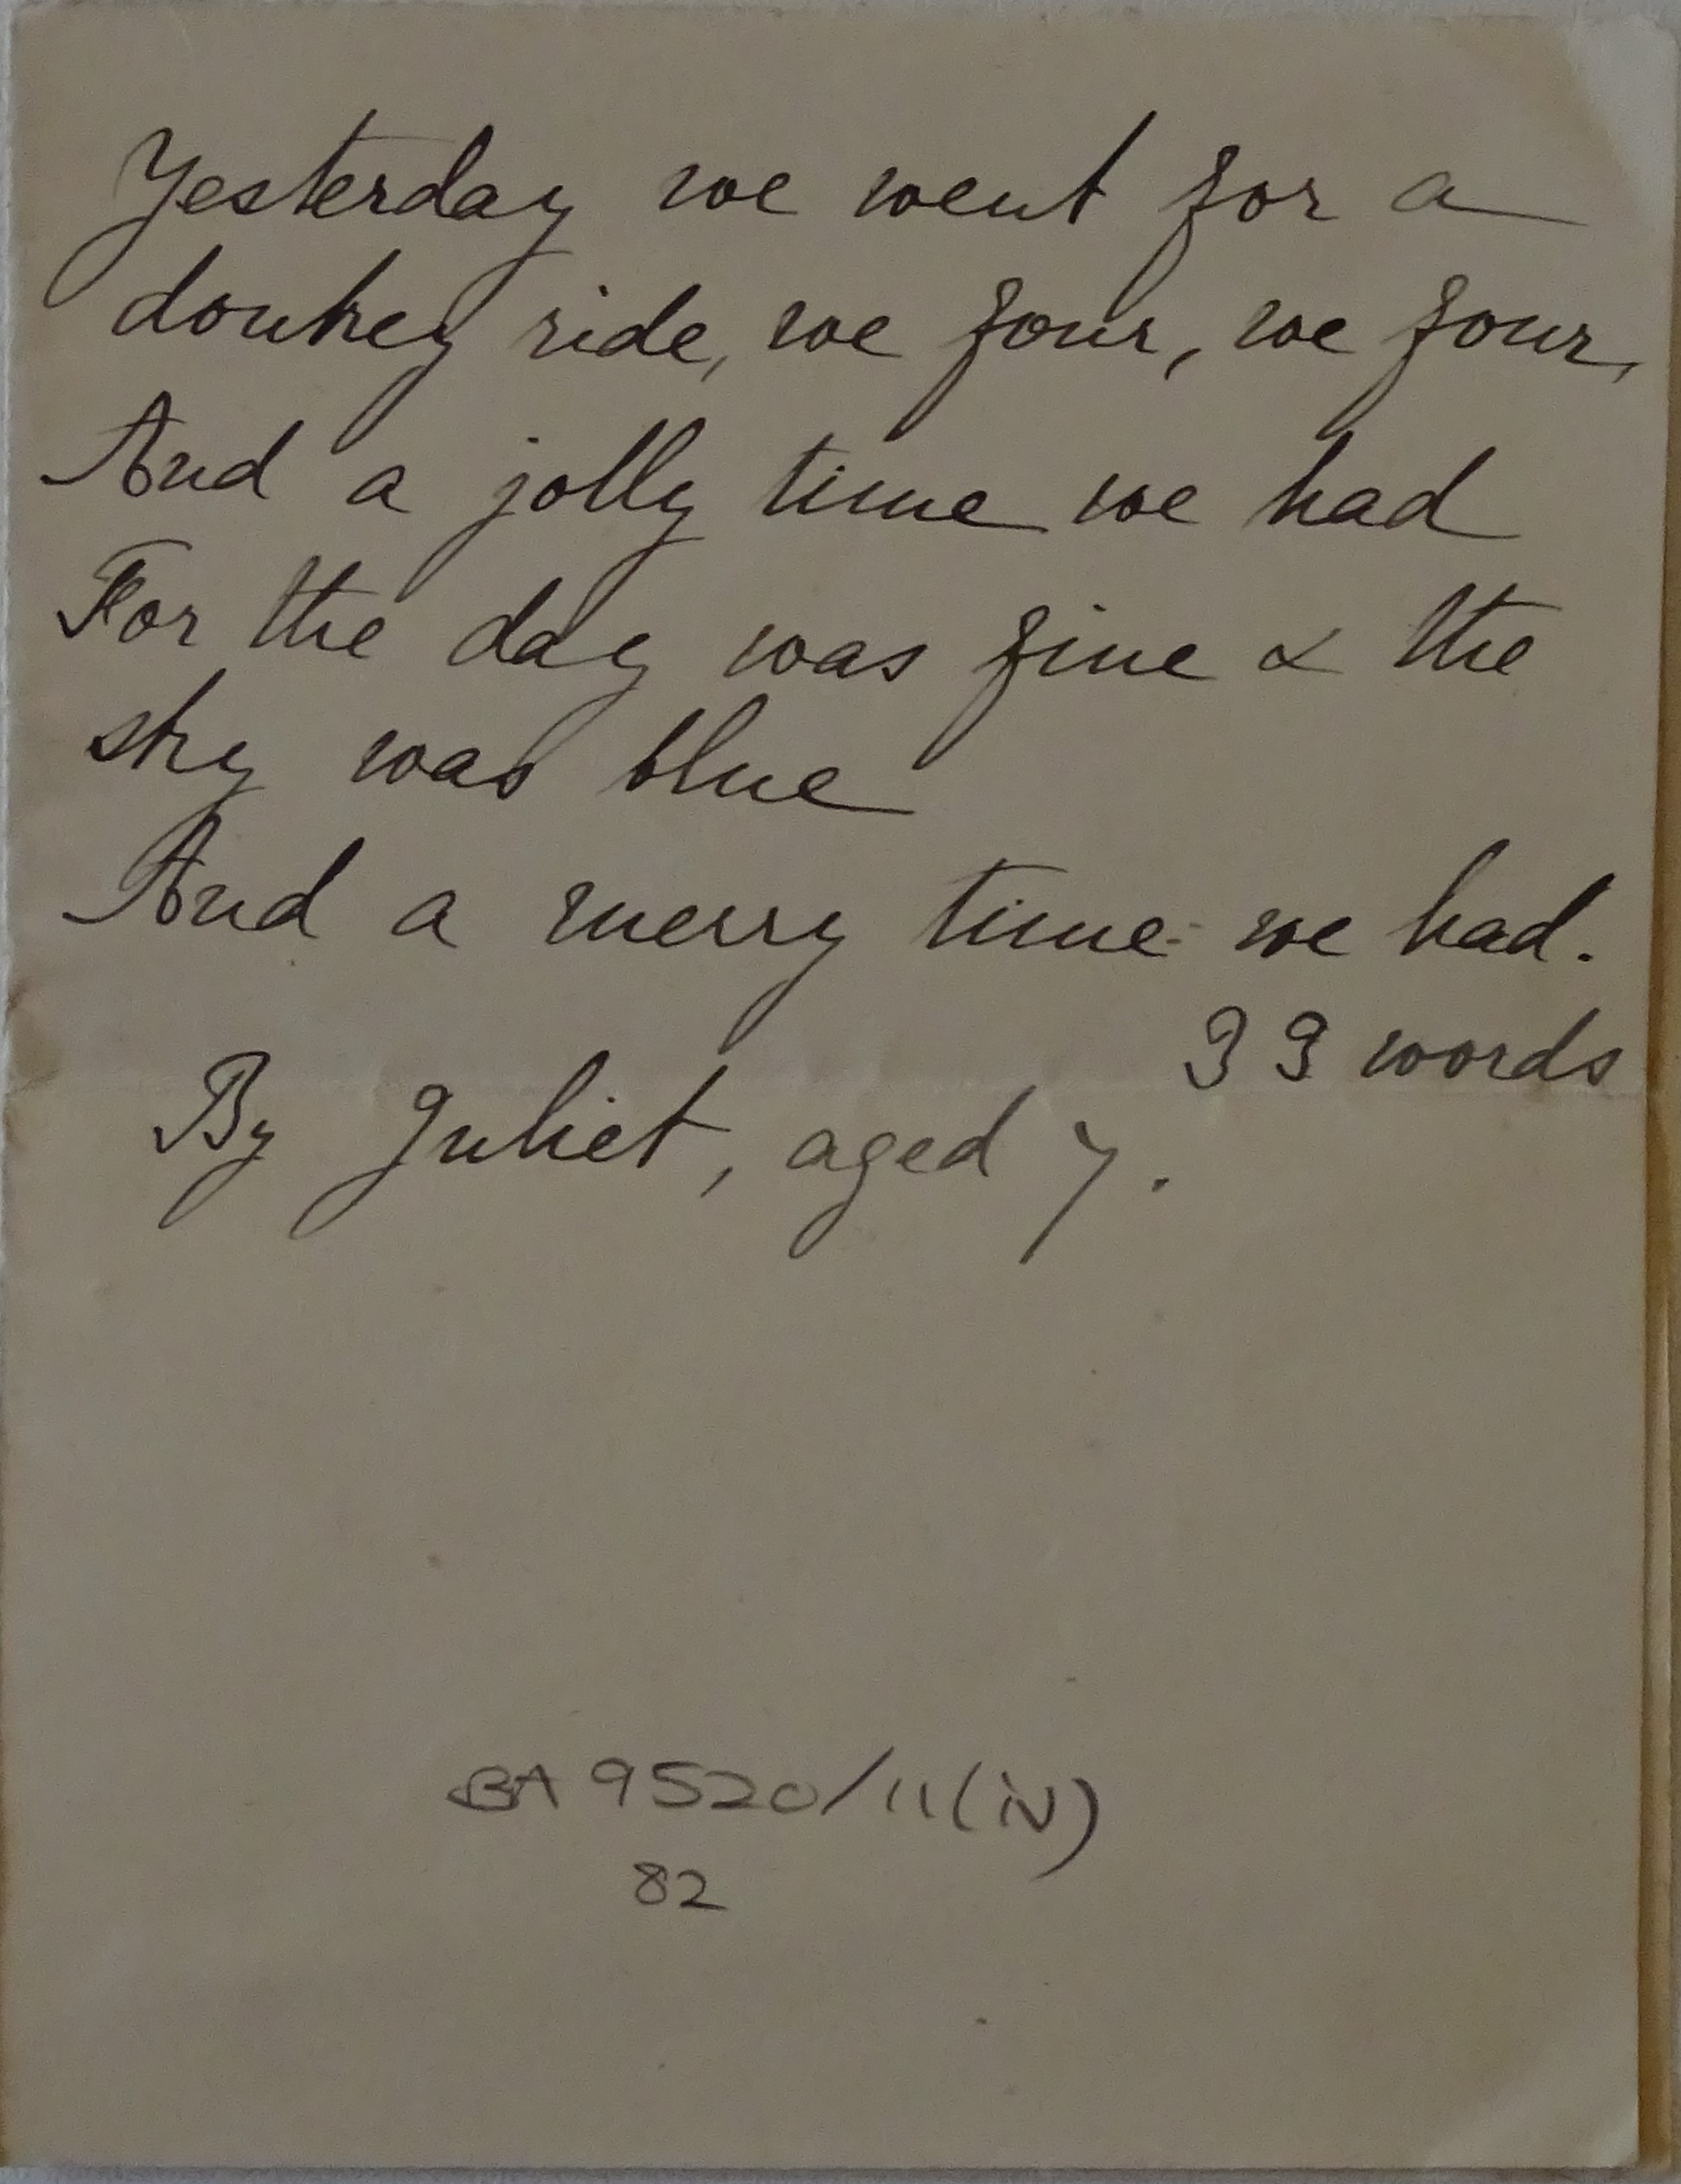 Yesterday we went for a
donkey ride, we four, we four,
And a jolly time we had
For the day was fine & the
sky was blue
And a merry time we had.
33 words
By Juliet, aged 7.
BA 9520/11(iv)
82